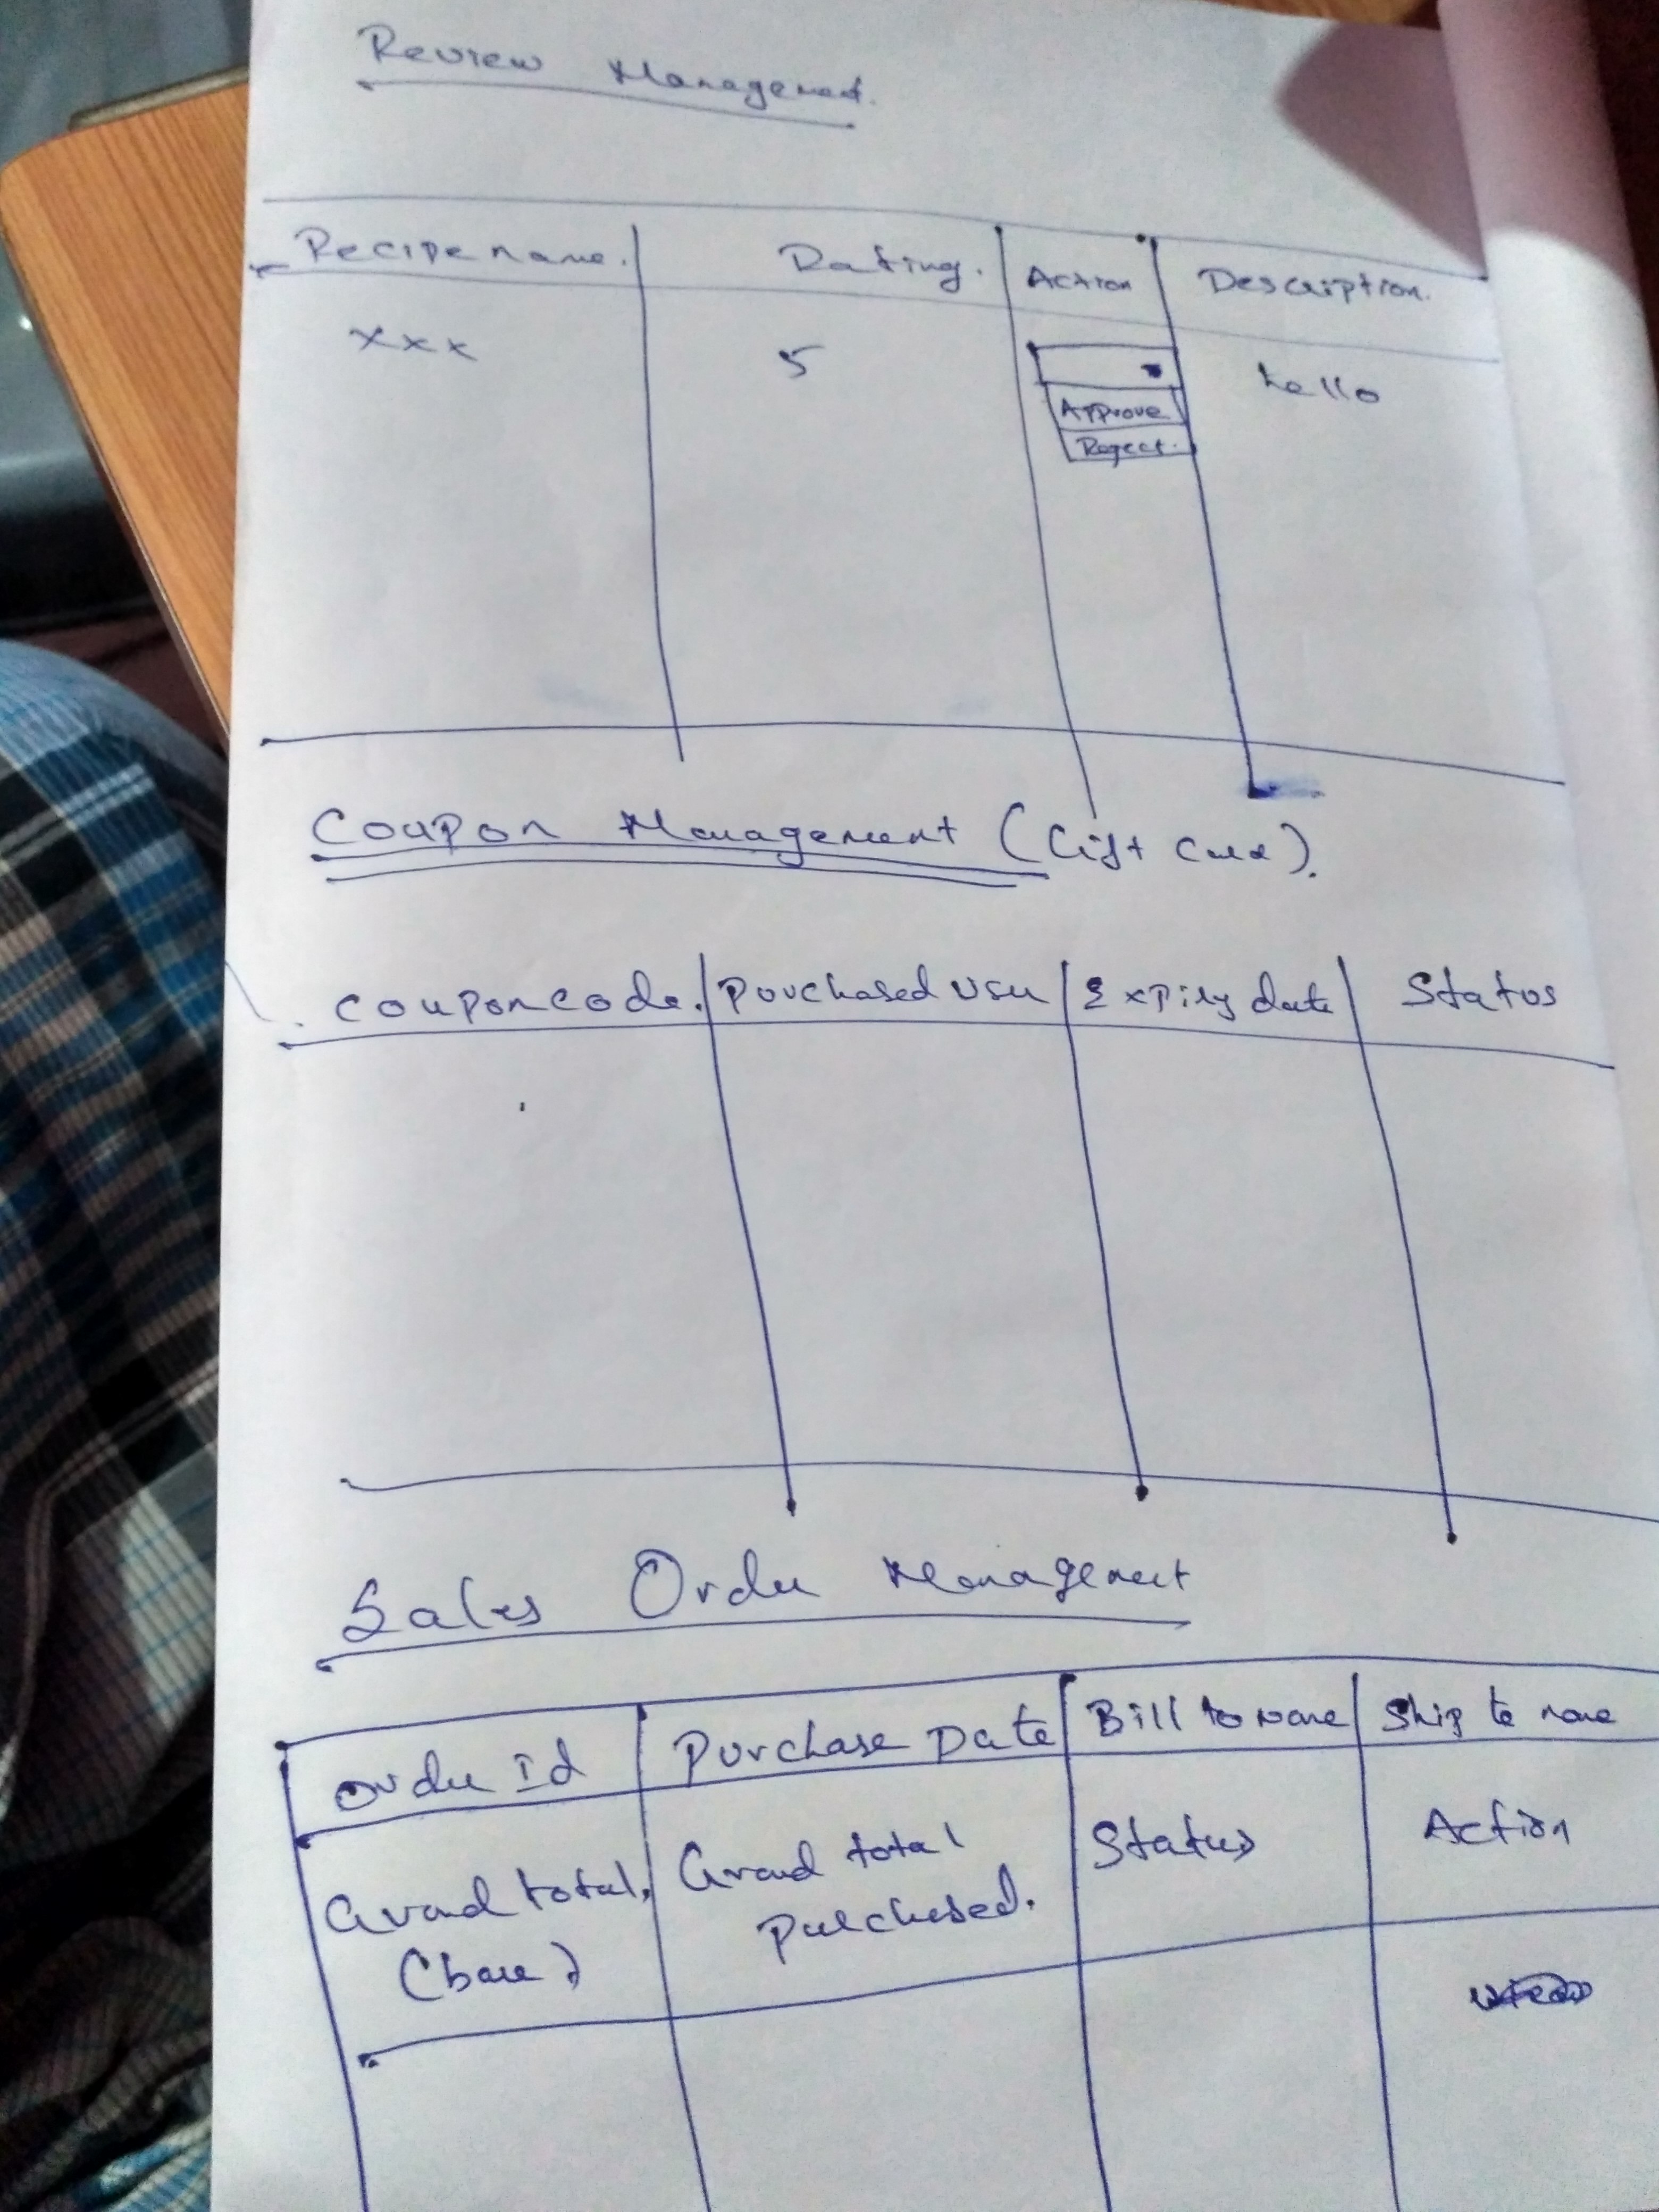 Review Management.
Recipe name. Rating. Action Description.
xxx 5 hello
Approve
Reject.
Coupon Management (Gift Card).
Coupon code. Purchased User Expiry date Status
Sales Order Management
Order Id Purchase Date Bill to name Ship to name
Grand total, Grand total Status Action
(base) purchased.